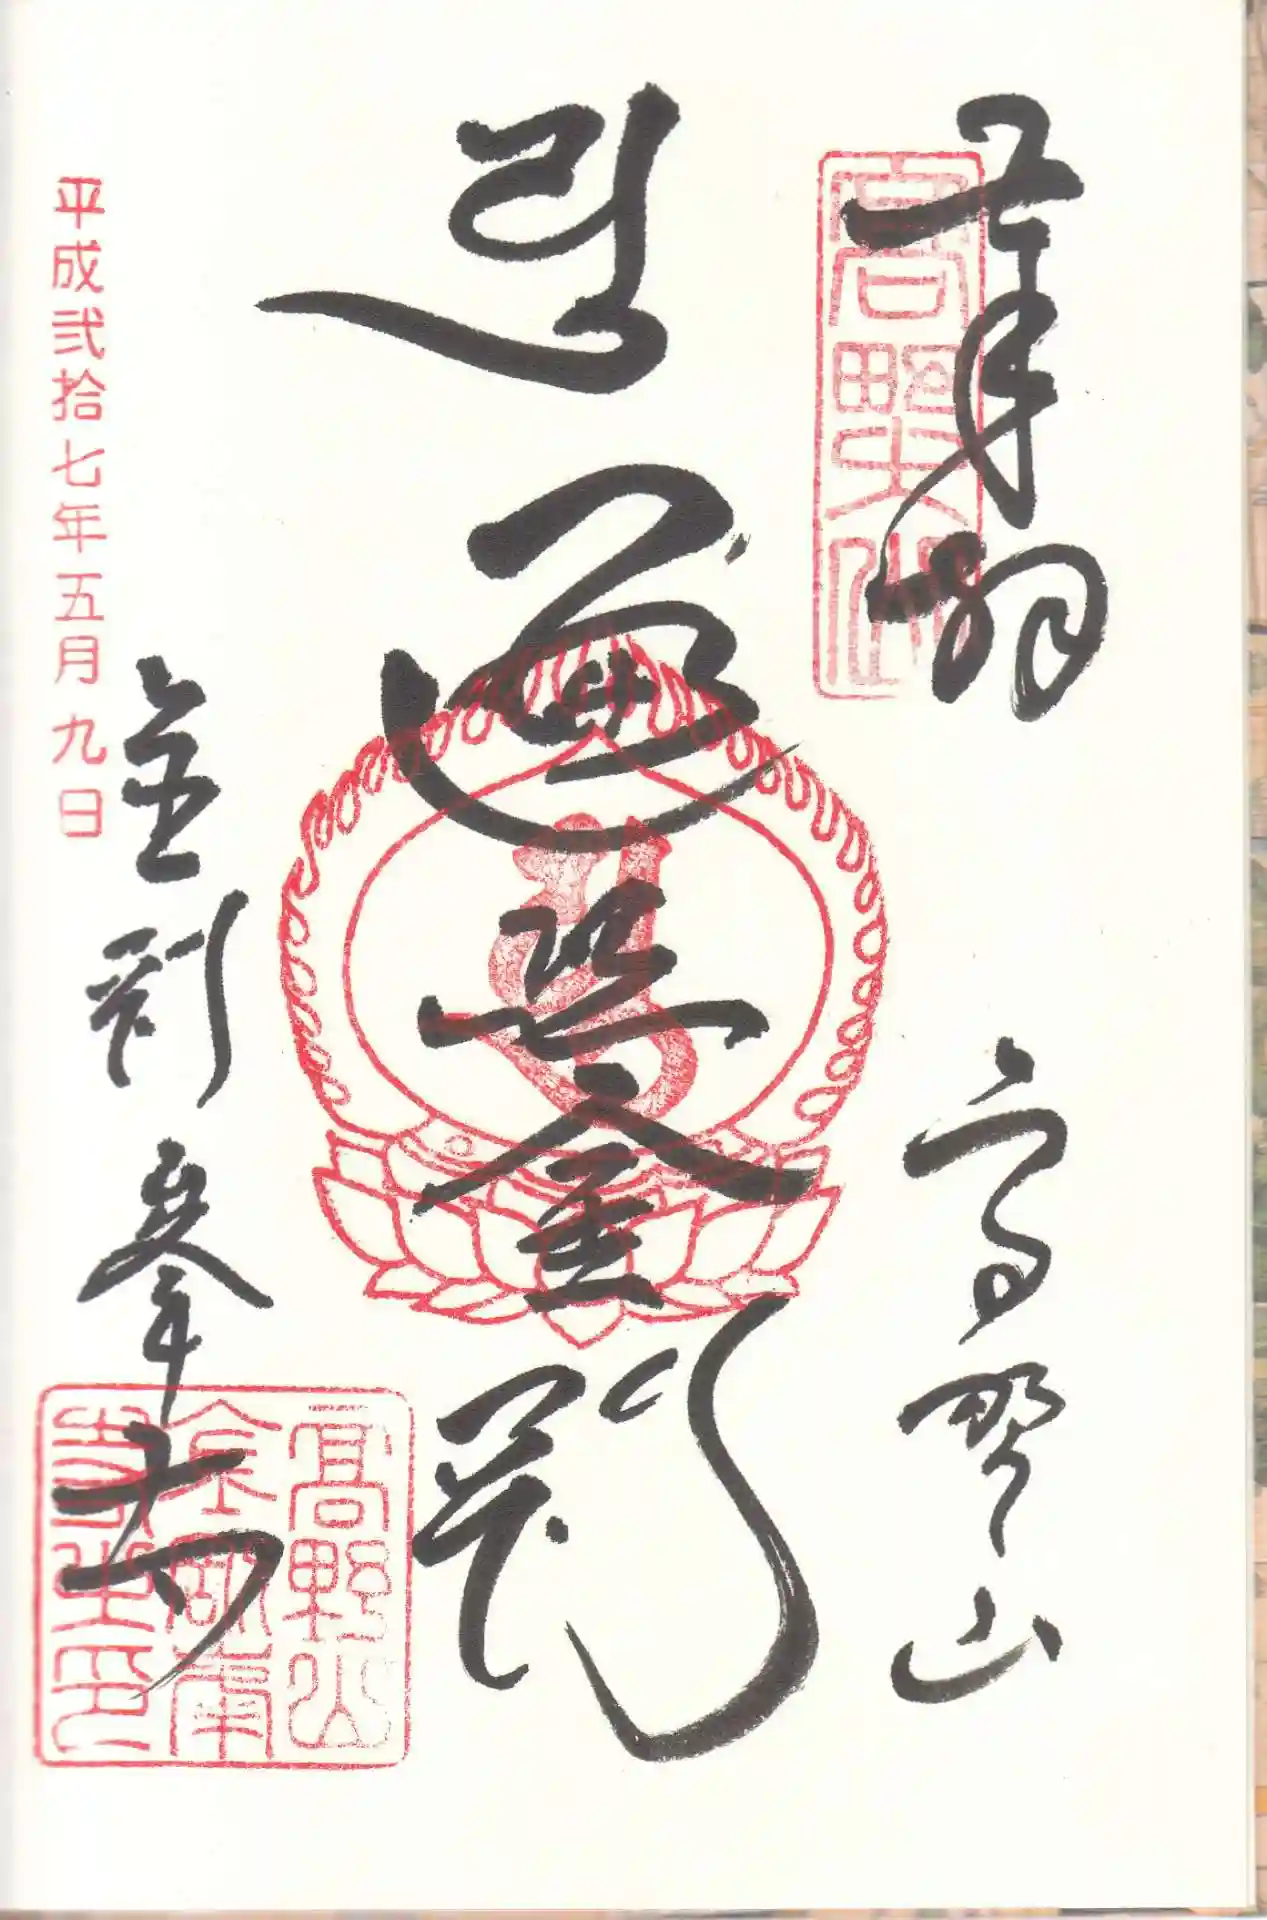 奉拝 高野山
遍照金剛
金剛峯寺
平成弐拾七年五月九日
高野山
金剛峯
寺之印